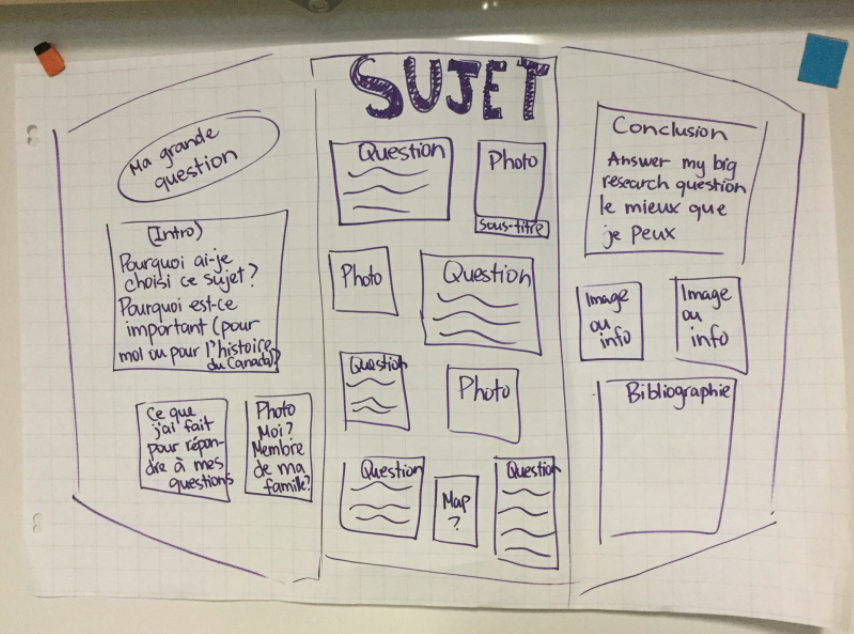 SUJET
Ma grande
question
(Intro)
Pourquoi ai-je
choisi ce sujet?
Pourquoi est-ce
important (pour
moi ou pour l'histoire
du Canada)?
Ce que
j'ai fait
pour répon-
dre à mes
questions
Photo
Moi?
Membre
de ma
famille?
Question
Photo
sous-titre
Photo
Question
Question
Photo
Question
Map
?
Question
Conclusion
Answer my big
research question
le mieux que
je peux
Image
ou
info
Image
ou
info
Bibliographie